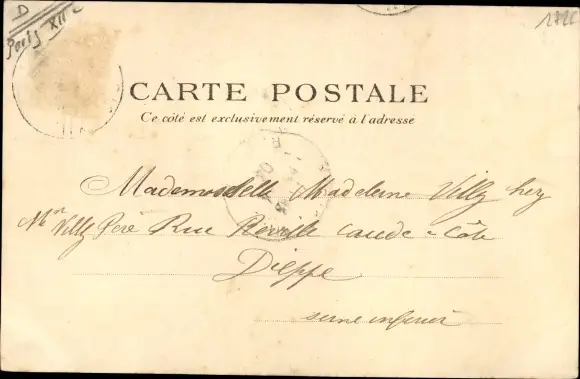 D
Paris XII e
CARTE POSTALE
Ce côté est exclusivement réservé à l'adresse
Mademoiselle Madeleine Villy chez
Mr Villy Père Rue caude-Côte
Dieppe
seine inferier